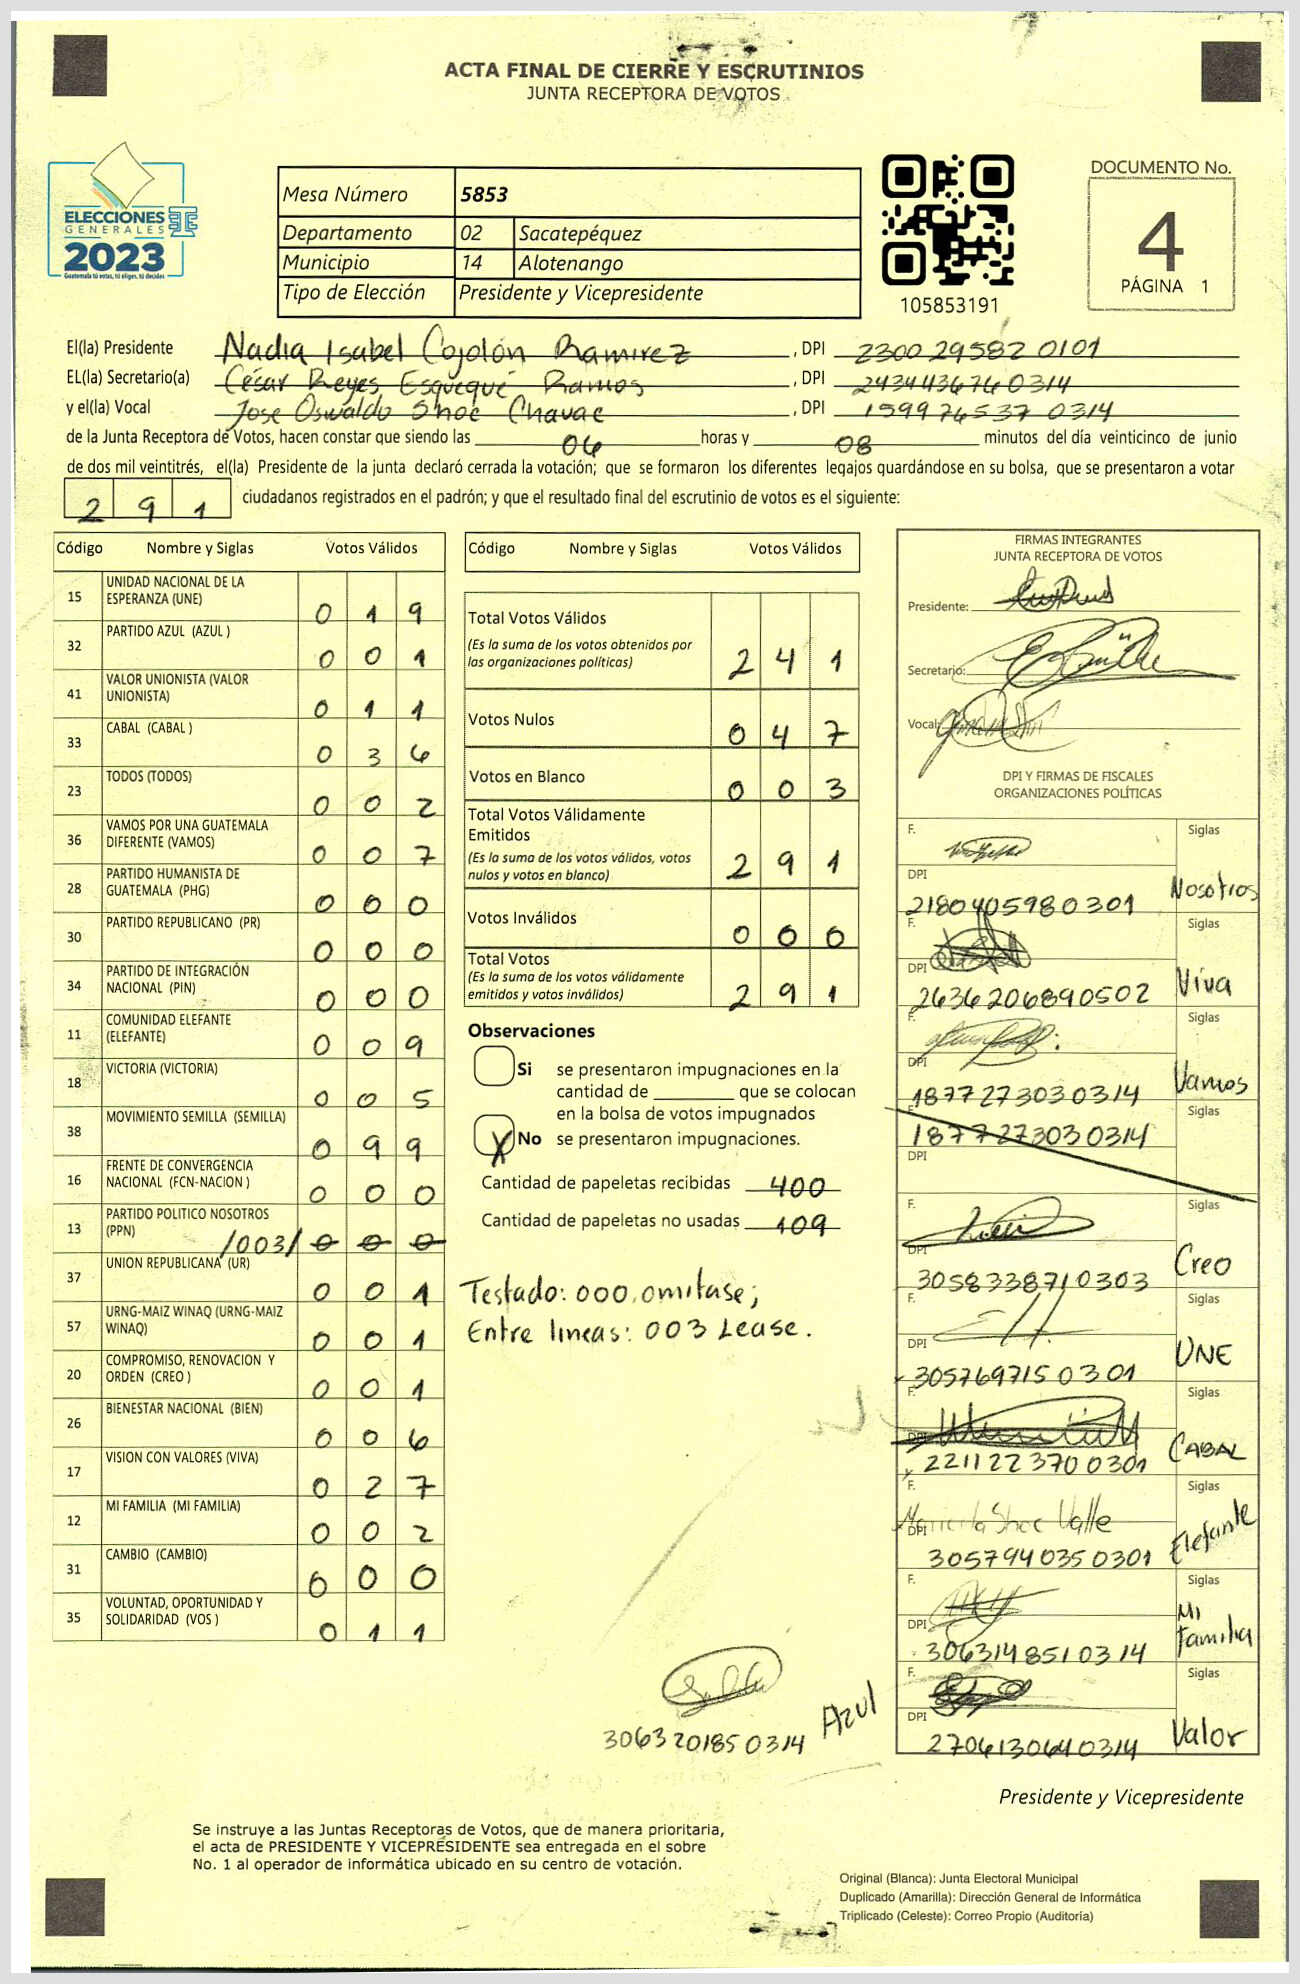 ACTA FINAL DE CIERRE Y ESCRUTINIOS
JUNTA RECEPTORA DE VOTOS
ELECCIONES
GENERALES
2023
Guatemala tú votas, tú eliges, tú decides
Mesa Número 5853
Departamento 02 Sacatepéquez
Municipio 14 Alotenango
Tipo de Elección Presidente y Vicepresidente
105853191
DOCUMENTO No.
4
PÁGINA 1
El(la) Presidente Nadia Isabel Cojolón Ramirez , DPI 2300 29582 0101
EL(la) Secretario(a) César Reyes Esquequé Ramos , DPI 243443676 0314
y el(la) Vocal Jose Oswaldo Shoc Chavac , DPI 159976537 0314
de la Junta Receptora de Votos, hacen constar que siendo las 06 horas y 08 minutos del día veinticinco de junio
de dos mil veintitrés, el(la) Presidente de la junta declaró cerrada la votación; que se formaron los diferentes legajos quardándose en su bolsa, que se presentaron a votar
2 9 1 ciudadanos registrados en el padrón; y que el resultado final del escrutinio de votos es el siguiente:
Código Nombre y Siglas Votos Válidos
15 UNIDAD NACIONAL DE LA ESPERANZA (UNE) 0 1 9
32 PARTIDO AZUL (AZUL ) 0 0 1
41 VALOR UNIONISTA (VALOR UNIONISTA) 0 1 1
33 CABAL (CABAL ) 0 3 6
23 TODOS (TODOS) 0 0 2
36 VAMOS POR UNA GUATEMALA DIFERENTE (VAMOS) 0 0 7
28 PARTIDO HUMANISTA DE GUATEMALA (PHG) 0 0 0
30 PARTIDO REPUBLICANO (PR) 0 0 0
34 PARTIDO DE INTEGRACIÓN NACIONAL (PIN) 0 0 0
11 COMUNIDAD ELEFANTE (ELEFANTE) 0 0 9
18 VICTORIA (VICTORIA) 0 0 5
38 MOVIMIENTO SEMILLA (SEMILLA) 0 9 9
16 FRENTE DE CONVERGENCIA NACIONAL (FCN-NACION ) 0 0 0
13 PARTIDO POLITICO NOSOTROS (PPN) /003/ 0 0 0
37 UNION REPUBLICANA (UR) 0 0 1
57 URNG-MAIZ WINAQ (URNG-MAIZ WINAQ) 0 0 1
20 COMPROMISO, RENOVACION Y ORDEN (CREO ) 0 0 1
26 BIENESTAR NACIONAL (BIEN) 0 0 6
17 VISION CON VALORES (VIVA) 0 2 7
12 MI FAMILIA (MI FAMILIA) 0 0 2
31 CAMBIO (CAMBIO) 0 0 0
35 VOLUNTAD, OPORTUNIDAD Y SOLIDARIDAD (VOS ) 0 1 1
Código Nombre y Siglas Votos Válidos
Total Votos Válidos 2 4 1
(Es la suma de los votos obtenidos por las organizaciones políticas)
Votos Nulos 0 4 7
Votos en Blanco 0 0 3
Total Votos Válidamente Emitidos 2 9 1
(Es la suma de los votos válidos, votos nulos y votos en blanco)
Votos Inválidos 0 0 0
Total Votos 2 9 1
(Es la suma de los votos válidamente emitidos y votos inválidos)
Observaciones
Si se presentaron impugnaciones en la
cantidad de ________ que se colocan
en la bolsa de votos impugnados
X No se presentaron impugnaciones.
Cantidad de papeletas recibidas 400
Cantidad de papeletas no usadas 109
Testado: 000.omitase;
Entre lineas: 003 Lease.
3063201850314 Azul
FIRMAS INTEGRANTES
JUNTA RECEPTORA DE VOTOS
Presidente:
Secretario:
Vocal:
DPI Y FIRMAS DE FISCALES
ORGANIZACIONES POLÍTICAS
F. Siglas
DPI 2180405980301 Nosotros
F. Siglas
DPI 2636206890502 Viva
F. Siglas
DPI 1877273030314 Vamos
F. Siglas
1877273030314
DPI
F. Siglas
DPI 3058338710303 Creo
F. Siglas
DPI 3057697150301 UNE
F. Siglas
DPI 2211223700301 CABAL
F. Siglas
Shoc Valle
DPI 3057940350301 Elefante
F. Siglas
DPI 3063148510314 Mi Familia
F. Siglas
DPI 2706130640314 Valor
Presidente y Vicepresidente
Se instruye a las Juntas Receptoras de Votos, que de manera prioritaria,
el acta de PRESIDENTE Y VICEPRESIDENTE sea entregada en el sobre
No. 1 al operador de informática ubicado en su centro de votación.
Original (Blanca): Junta Electoral Municipal
Duplicado (Amarilla): Dirección General de Informática
Triplicado (Celeste): Correo Propio (Auditoría)